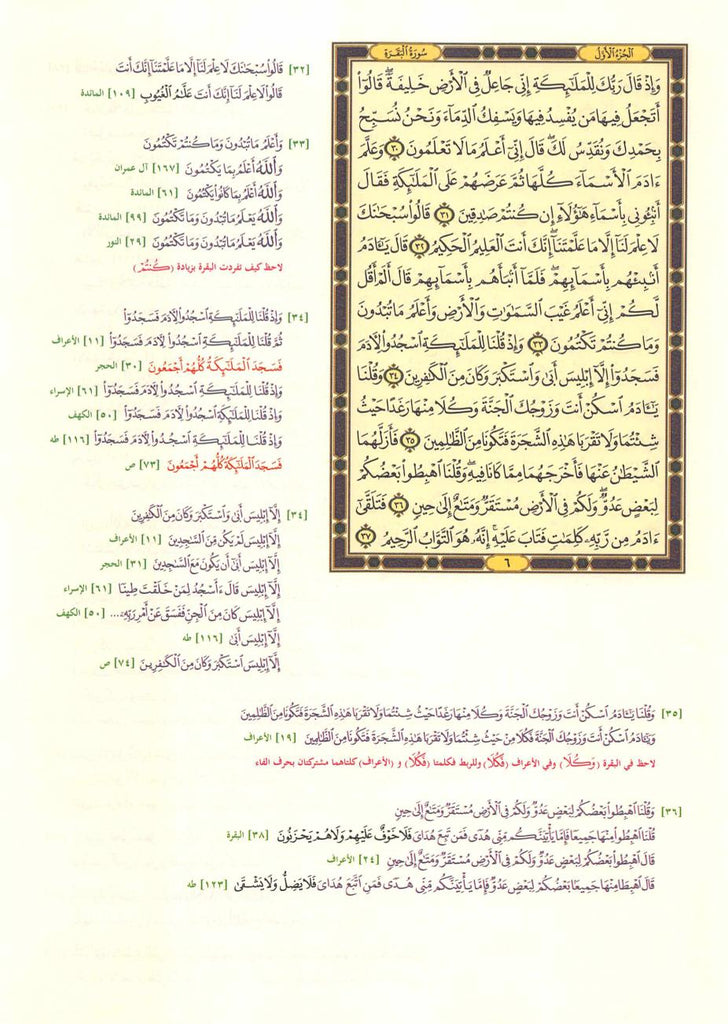 الجزء الأول
سورة البقرة
وَإِذْ قَالَ رَبُّكَ لِلْمَلَٰٓئِكَةِ إِنِّي جَاعِلٌ فِي ٱلْأَرْضِ خَلِيفَةً ۖ قَالُوٓا۟
أَتَجْعَلُ فِيهَا مَن يُفْسِدُ فِيهَا وَيَسْفِكُ ٱلدِّمَآءَ وَنَحْنُ نُسَبِّحُ
بِحَمْدِكَ وَنُقَدِّسُ لَكَ ۖ قَالَ إِنِّيٓ أَعْلَمُ مَا لَا تَعْلَمُونَ ٣٠ وَعَلَّمَ
ءَادَمَ ٱلْأَسْمَآءَ كُلَّهَا ثُمَّ عَرَضَهُمْ عَلَى ٱلْمَلَٰٓئِكَةِ فَقَالَ
أَنۢبِـُٔونِي بِأَسْمَآءِ هَٰٓؤُلَآءِ إِن كُنتُمْ صَٰدِقِينَ ٣١ قَالُوا۟ سُبْحَٰنَكَ
لَا عِلْمَ لَنَآ إِلَّا مَا عَلَّمْتَنَآ ۖ إِنَّكَ أَنتَ ٱلْعَلِيمُ ٱلْحَكِيمُ ٣٢ قَالَ يَٰٓـَٔادَمُ
أَنۢبِئْهُم بِأَسْمَآئِهِمْ ۖ فَلَمَّآ أَنۢبَأَهُم بِأَسْمَآئِهِمْ قَالَ أَلَمْ أَقُل
لَّكُمْ إِنِّيٓ أَعْلَمُ غَيْبَ ٱلسَّمَٰوَٰتِ وَٱلْأَرْضِ وَأَعْلَمُ مَا تُبْدُونَ
وَمَا كُنتُمْ تَكْتُمُونَ ٣٣ وَإِذْ قُلْنَا لِلْمَلَٰٓئِكَةِ ٱسْجُدُوا۟ لِـَٔادَمَ
فَسَجَدُوٓا۟ إِلَّآ إِبْلِيسَ أَبَىٰ وَٱسْتَكْبَرَ وَكَانَ مِنَ ٱلْكَٰفِرِينَ ٣٤ وَقُلْنَا
يَٰٓـَٔادَمُ ٱسْكُنْ أَنتَ وَزَوْجُكَ ٱلْجَنَّةَ وَكُلَا مِنْهَا رَغَدًا حَيْثُ
شِئْتُمَا وَلَا تَقْرَبَا هَٰذِهِ ٱلشَّجَرَةَ فَتَكُونَا مِنَ ٱلظَّٰلِمِينَ ٣٥ فَأَزَلَّهُمَا
ٱلشَّيْطَٰنُ عَنْهَا فَأَخْرَجَهُمَا مِمَّا كَانَا فِيهِ ۖ وَقُلْنَا ٱهْبِطُوا۟ بَعْضُكُمْ
لِبَعْضٍ عَدُوٌّ ۖ وَلَكُمْ فِي ٱلْأَرْضِ مُسْتَقَرٌّ وَمَتَٰعٌ إِلَىٰ حِينٍ ٣٦ فَتَلَقَّىٰٓ
ءَادَمُ مِن رَّبِّهِۦ كَلِمَٰتٍ فَتَابَ عَلَيْهِ ۚ إِنَّهُۥ هُوَ ٱلتَّوَّابُ ٱلرَّحِيمُ ٣٧
٦
[٣٢] قَالُوا۟ سُبْحَٰنَكَ لَا عِلْمَ لَنَآ إِلَّا مَا عَلَّمْتَنَآ إِنَّكَ أَنتَ
قَالُوا۟ لَا عِلْمَ لَنَآ إِنَّكَ أَنتَ عَلَّٰمُ ٱلْغُيُوبِ [١٠٩] المائدة
[٣٣] وَأَعْلَمُ مَا تُبْدُونَ وَمَا كُنتُمْ تَكْتُمُونَ
وَٱللَّهُ أَعْلَمُ بِمَا يَكْتُمُونَ [١٦٧] آل عمران
وَٱللَّهُ أَعْلَمُ بِمَا كَانُوا۟ يَكْتُمُونَ [٦١] المائدة
وَٱللَّهُ يَعْلَمُ مَا تُبْدُونَ وَمَا تَكْتُمُونَ [٩٩] المائدة
وَٱللَّهُ يَعْلَمُ مَا تُبْدُونَ وَمَا تَكْتُمُونَ [٢٩] النور
لاحظ كيف تفردت البقرة بزيادة (كُنتُمْ)
[٣٤] وَإِذْ قُلْنَا لِلْمَلَٰٓئِكَةِ ٱسْجُدُوا۟ لِـَٔادَمَ فَسَجَدُوٓا۟
ثُمَّ قُلْنَا لِلْمَلَٰٓئِكَةِ ٱسْجُدُوا۟ لِـَٔادَمَ فَسَجَدُوٓا۟ [١١] الأعراف
فَسَجَدَ ٱلْمَلَٰٓئِكَةُ كُلُّهُمْ أَجْمَعُونَ [٣٠] الحجر
وَإِذْ قُلْنَا لِلْمَلَٰٓئِكَةِ ٱسْجُدُوا۟ لِـَٔادَمَ فَسَجَدُوٓا۟ [٦١] الإسراء
وَإِذْ قُلْنَا لِلْمَلَٰٓئِكَةِ ٱسْجُدُوا۟ لِـَٔادَمَ فَسَجَدُوٓا۟ [٥٠] الكهف
وَإِذْ قُلْنَا لِلْمَلَٰٓئِكَةِ ٱسْجُدُوا۟ لِـَٔادَمَ فَسَجَدُوٓا۟ [١١٦] طه
فَسَجَدَ ٱلْمَلَٰٓئِكَةُ كُلُّهُمْ أَجْمَعُونَ [٧٣] ص
[٣٤] إِلَّآ إِبْلِيسَ أَبَىٰ وَٱسْتَكْبَرَ وَكَانَ مِنَ ٱلْكَٰفِرِينَ
إِلَّآ إِبْلِيسَ لَمْ يَكُن مِّنَ ٱلسَّٰجِدِينَ [١١] الأعراف
إِلَّآ إِبْلِيسَ أَبَىٰٓ أَن يَكُونَ مَعَ ٱلسَّٰجِدِينَ [٣١] الحجر
إِلَّآ إِبْلِيسَ قَالَ ءَأَسْجُدُ لِمَنْ خَلَقْتَ طِينًا [٦١] الإسراء
إِلَّآ إِبْلِيسَ كَانَ مِنَ ٱلْجِنِّ فَفَسَقَ عَنْ أَمْرِ رَبِّهِۦٓ... [٥٠] الكهف
إِلَّآ إِبْلِيسَ أَبَىٰ [١١٦] طه
إِلَّآ إِبْلِيسَ ٱسْتَكْبَرَ وَكَانَ مِنَ ٱلْكَٰفِرِينَ [٧٤] ص
[٣٥] وَقُلْنَا يَٰٓـَٔادَمُ ٱسْكُنْ أَنتَ وَزَوْجُكَ ٱلْجَنَّةَ وَكُلَا مِنْهَا رَغَدًا حَيْثُ شِئْتُمَا وَلَا تَقْرَبَا هَٰذِهِ ٱلشَّجَرَةَ فَتَكُونَا مِنَ ٱلظَّٰلِمِينَ
وَيَٰٓـَٔادَمُ ٱسْكُنْ أَنتَ وَزَوْجُكَ ٱلْجَنَّةَ فَكُلَا مِنْ حَيْثُ شِئْتُمَا وَلَا تَقْرَبَا هَٰذِهِ ٱلشَّجَرَةَ فَتَكُونَا مِنَ ٱلظَّٰلِمِينَ [١٩] الأعراف
لاحظ في البقرة (وَكُلَا) وفي الأعراف (فَكُلَا) وللربط فكلمتا (فَكُلَا) و (الأعراف) كلتاهما مشتركتان بحرف الفاء
[٣٦] وَقُلْنَا ٱهْبِطُوا۟ بَعْضُكُمْ لِبَعْضٍ عَدُوٌّ وَلَكُمْ فِي ٱلْأَرْضِ مُسْتَقَرٌّ وَمَتَٰعٌ إِلَىٰ حِينٍ
قُلْنَا ٱهْبِطُوا۟ مِنْهَا جَمِيعًا فَإِمَّا يَأْتِيَنَّكُم مِّنِّي هُدًى فَمَن تَبِعَ هُدَايَ فَلَا خَوْفٌ عَلَيْهِمْ وَلَا هُمْ يَحْزَنُونَ [٣٨] البقرة
قَالَ ٱهْبِطُوا۟ بَعْضُكُمْ لِبَعْضٍ عَدُوٌّ وَلَكُمْ فِي ٱلْأَرْضِ مُسْتَقَرٌّ وَمَتَٰعٌ إِلَىٰ حِينٍ [٢٤] الأعراف
قَالَ ٱهْبِطَا مِنْهَا جَمِيعًۢا بَعْضُكُمْ لِبَعْضٍ عَدُوٌّ فَإِمَّا يَأْتِيَنَّكُم مِّنِّي هُدًى فَمَنِ ٱتَّبَعَ هُدَايَ فَلَا يَضِلُّ وَلَا يَشْقَىٰ [١٢٣] طه